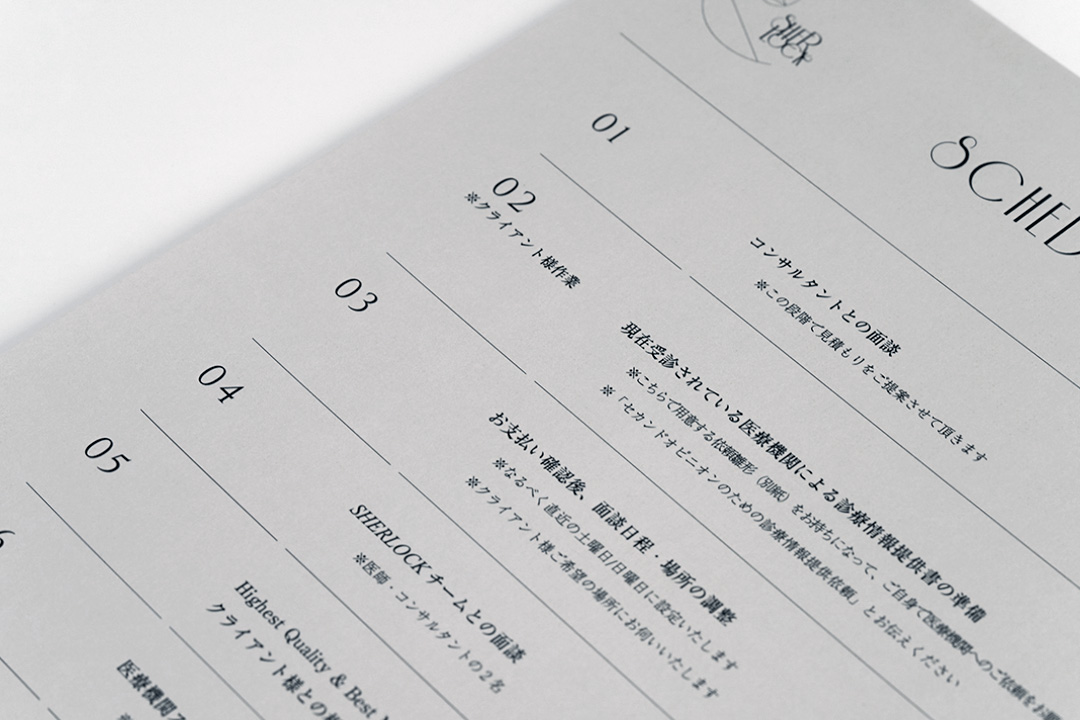 SHERLOCK
SCHED
01
コンサルタントとの面談
※この段階で見積もりをご提案させて頂きます
02
※クライアント様作業
現在受診されている医療機関による診療情報提供書の準備
※こちらで用意する依頼雛形（別紙）をお持ちになって、ご自身で医療機関へのご依頼をお
※「セカンドオピニオンのための診療情報提供依頼」とお伝えください
03
お支払い確認後、面談日程・場所の調整
※なるべく直近の土曜日/日曜日に設定いたします
※クライアント様ご希望の場所にお伺いいたします
04
SHERLOCK チームとの面談
※医師・コンサルタントの2名
05
Highest Quality & Best
クライアント様との
6
医療機関